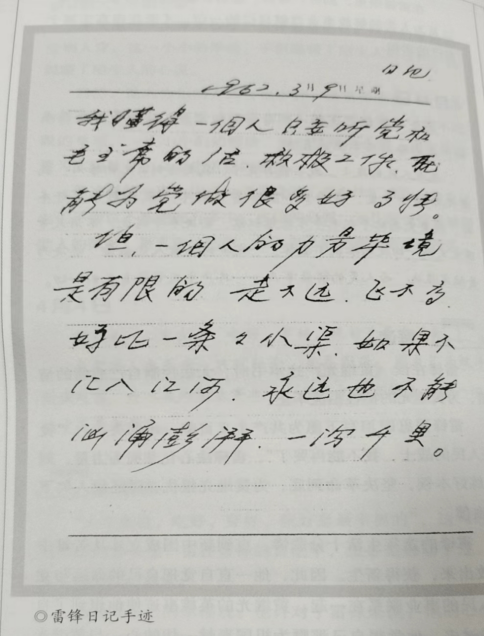 日记
1962.3月9日星期
我懂得一個人只要听党和
毛主席的话.积极工作.就
能为党做很多好事情。
但,一個人的力量毕境
是有限的 走不远.飞不高.
好比一条々小渠.如果不
汇入江河.永远也不能
汹涌澎湃.一泻千里。
◎雷锋日记手迹